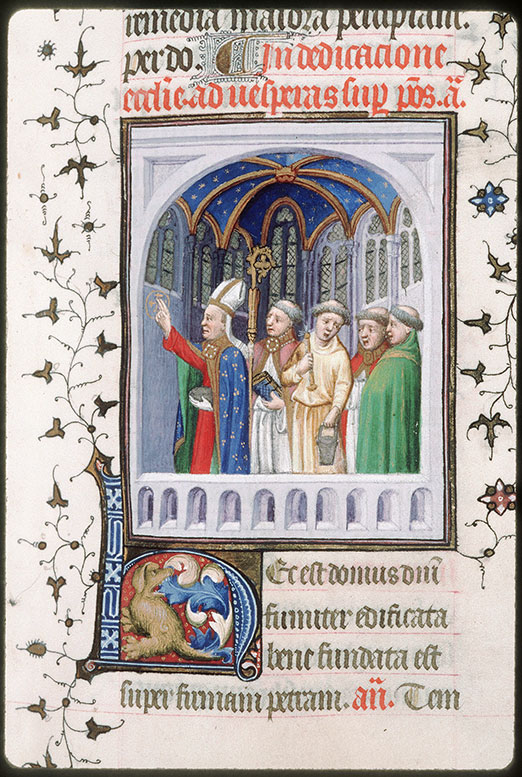 remedia maiora percipiam.
per do. In dedicacione
ecclie. ad uesperas sup ps. a.
Hec est domus dni
firmiter edificata
bene fundata est
super firmam petram. an. Tem